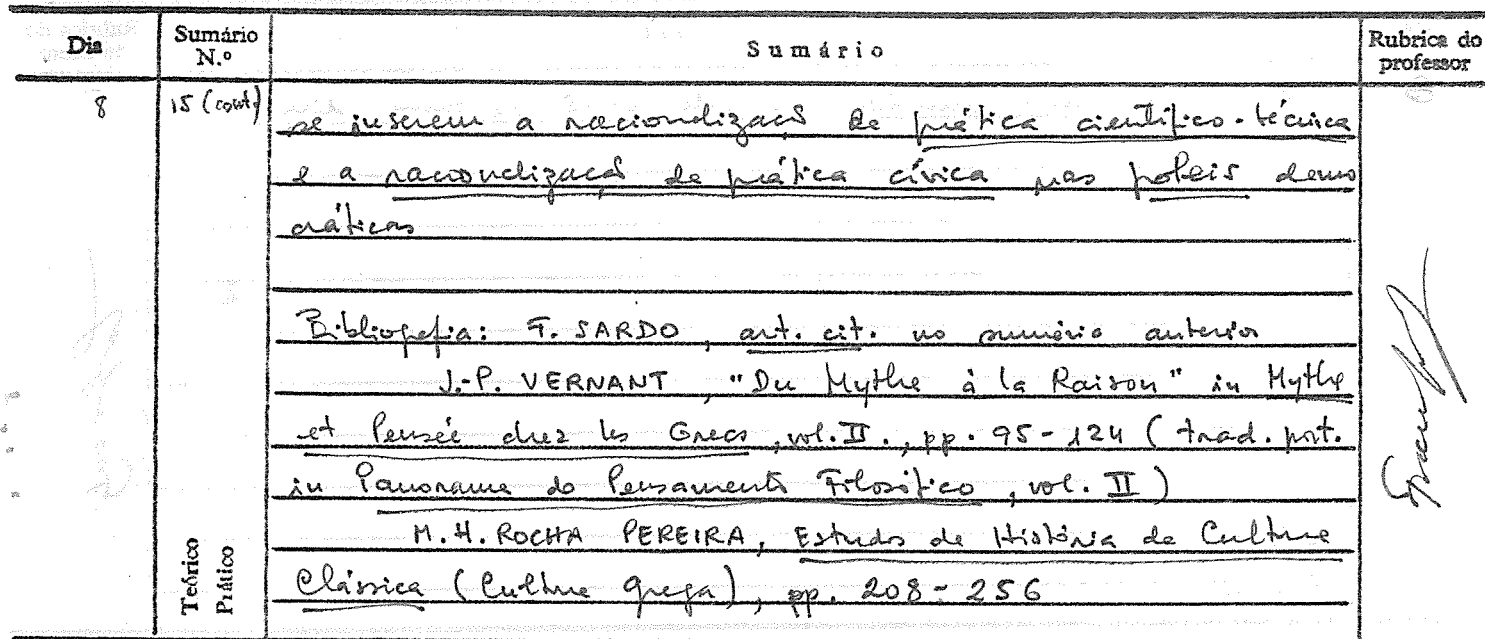 Dia
Sumário N.º
Sumário
Rubrica do professor
8
15 (cont.)
se inserem a racionalização da prática científico-técnica
e a racionalização da prática cívica nas poleis demo
cráticas
Bibliografia: F. SARDO, art. cit. no sumário anterior
J.-P. VERNANT, "Du Mythe à la Raison" in Mythe
et Pensée chez les Grecs, vol. II., pp. 95-124 (trad. port.
in Panorama do Pensamento Filosófico, vol. II)
M. H. ROCHA PEREIRA, Estudos de História da Cultura
Clássica (Cultura grega), pp. 208-256
Teórico
Prático